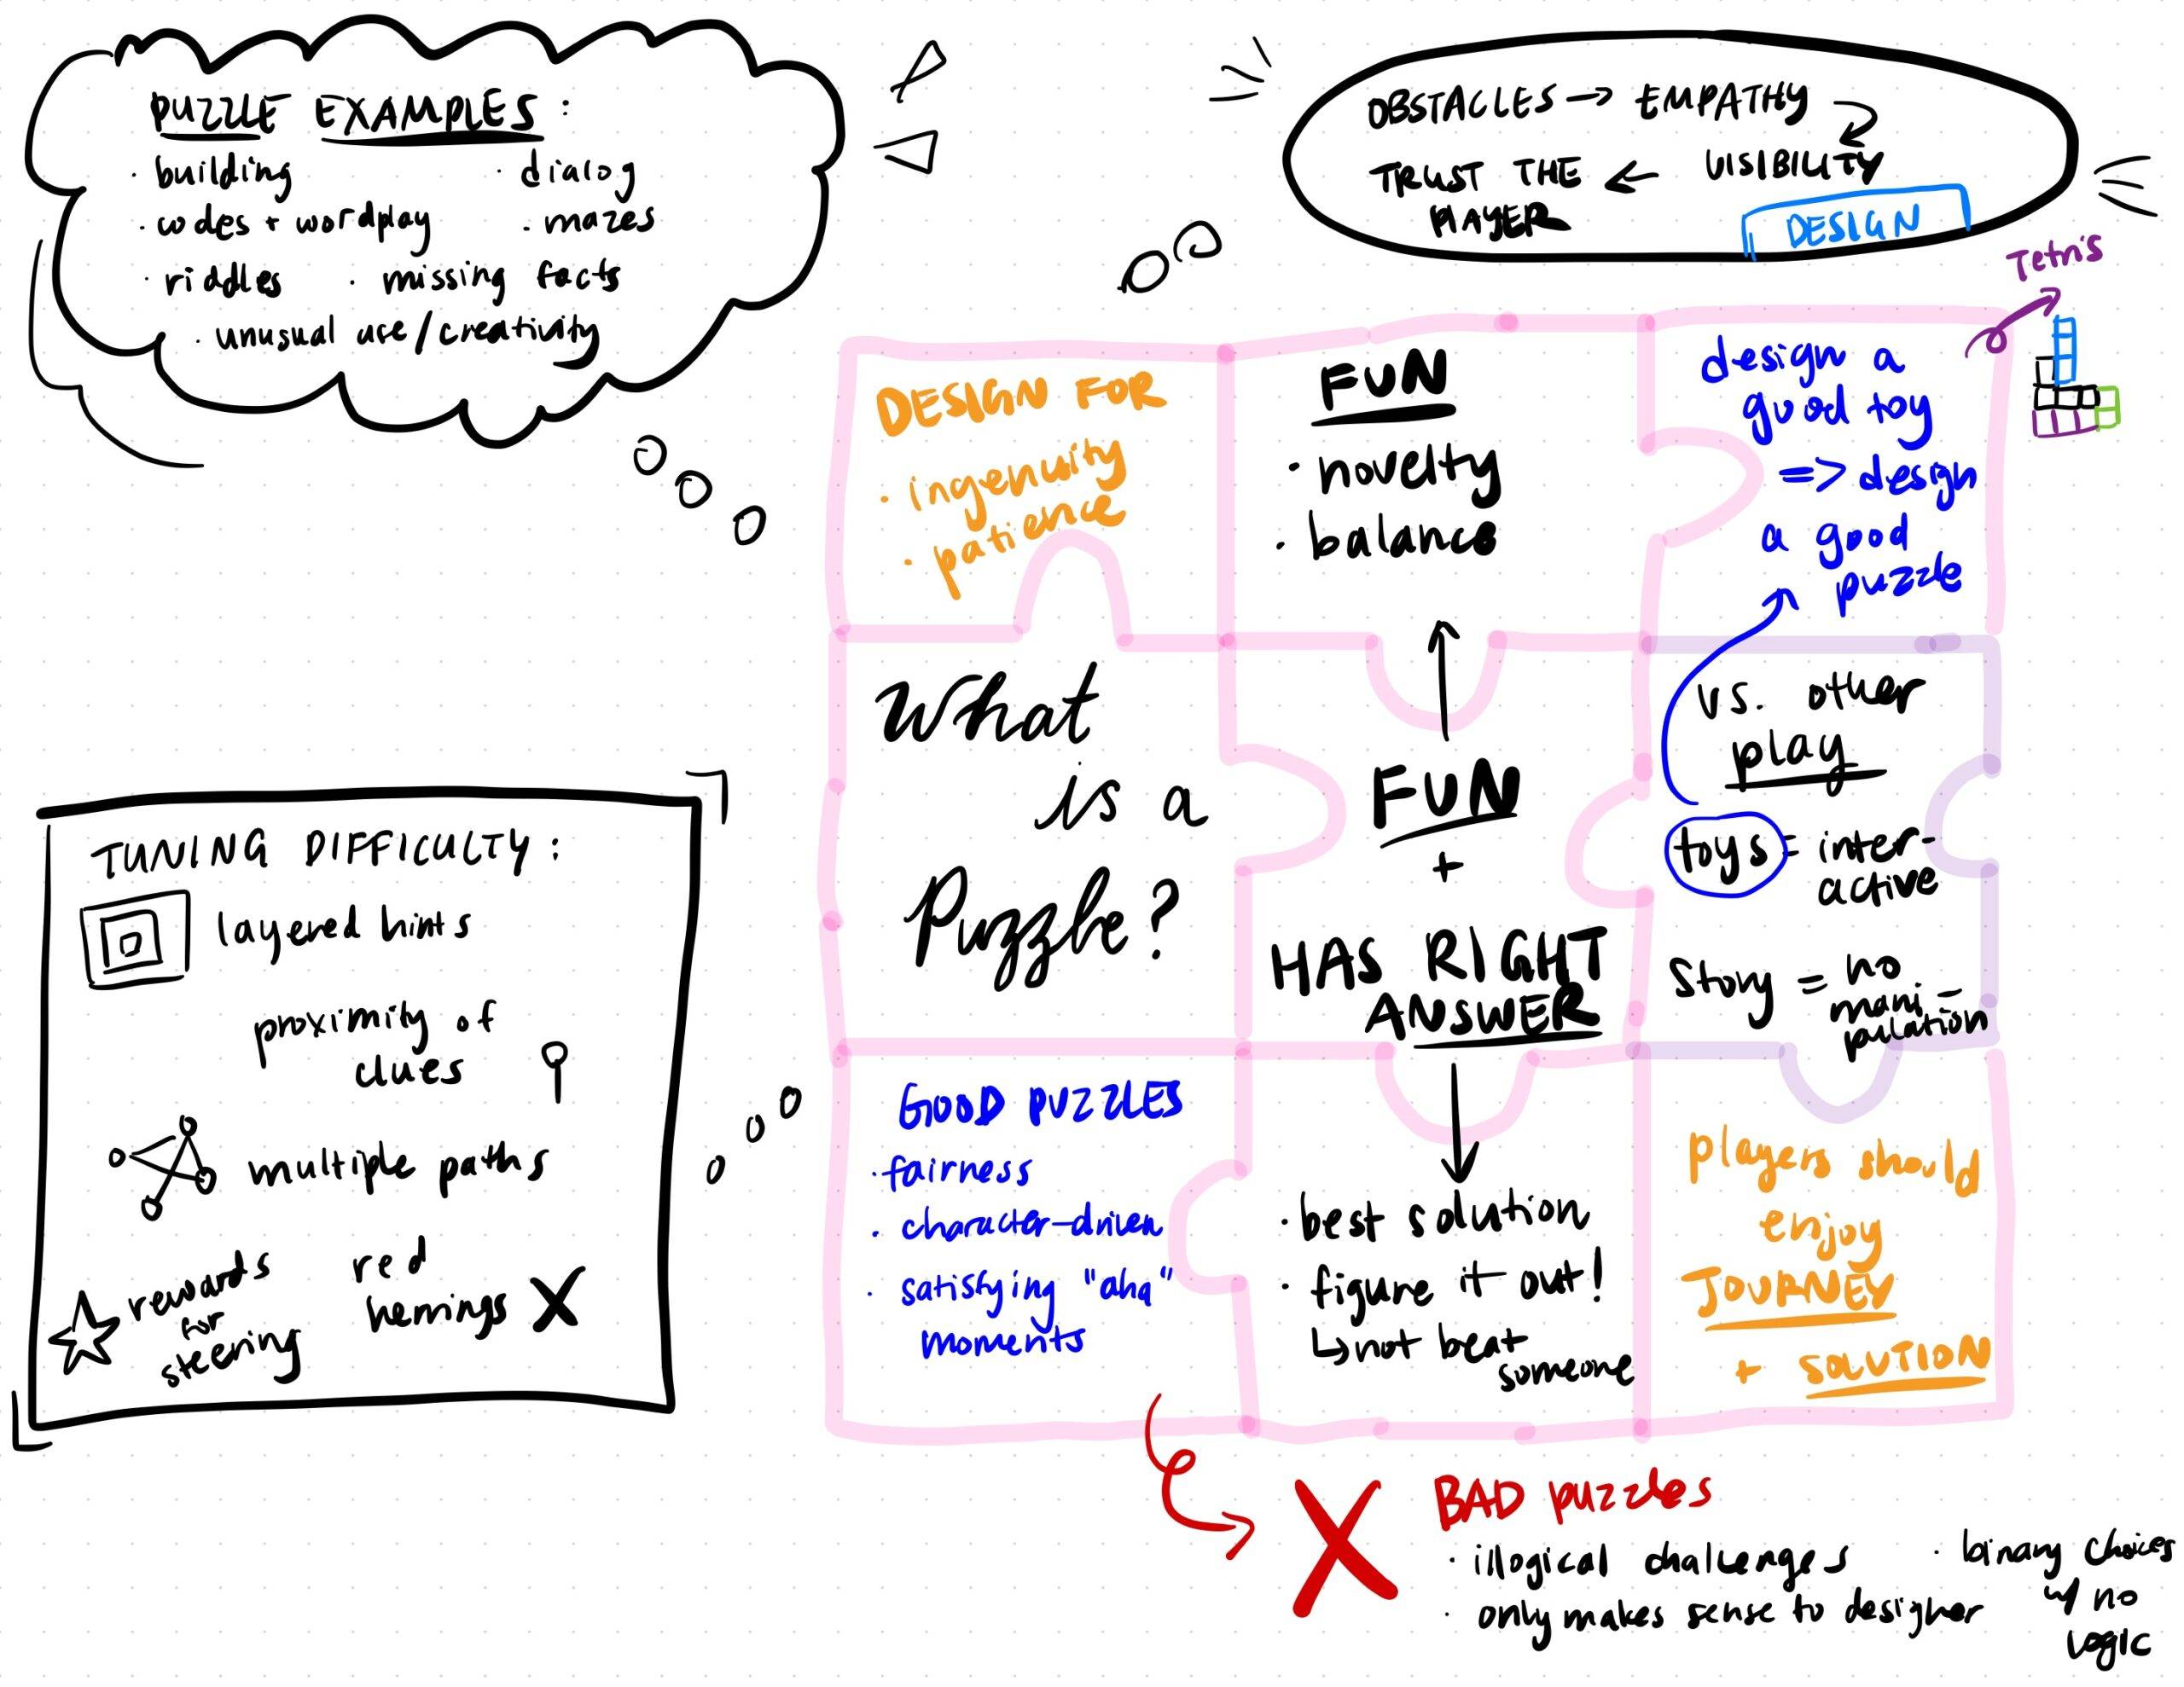 PUZZLE EXAMPLES:
· building
· dialog
· codes + wordplay
· mazes
· riddles
· missing facts
· unusual use/creativity
OBSTACLES → EMPATHY
TRUST THE ← VISIBILITY
PLAYER
DESIGN
Tetris
DESIGN FOR
· ingenuity
· patience
FUN
· novelty
· balance
design a
good toy
=> design
a good
puzzle
What
is a
Puzzle?
FUN
+
HAS RIGHT
ANSWER
vs. other
play
toys = inter-
active
Story = no
mani-
pulation
TUNING DIFFICULTY:
layered hints
proximity of
clues
multiple paths
rewards
for
steering
red
herrings X
GOOD PUZZLES
· fairness
· character-driven
· satisfying "aha"
moments
· best solution
· figure it out!
↳ not beat
someone
players should
enjoy
JOURNEY
+ SOLUTION
X BAD puzzles
· illogical challenges
· only makes sense to designer
· binary choices
w/ no
logic